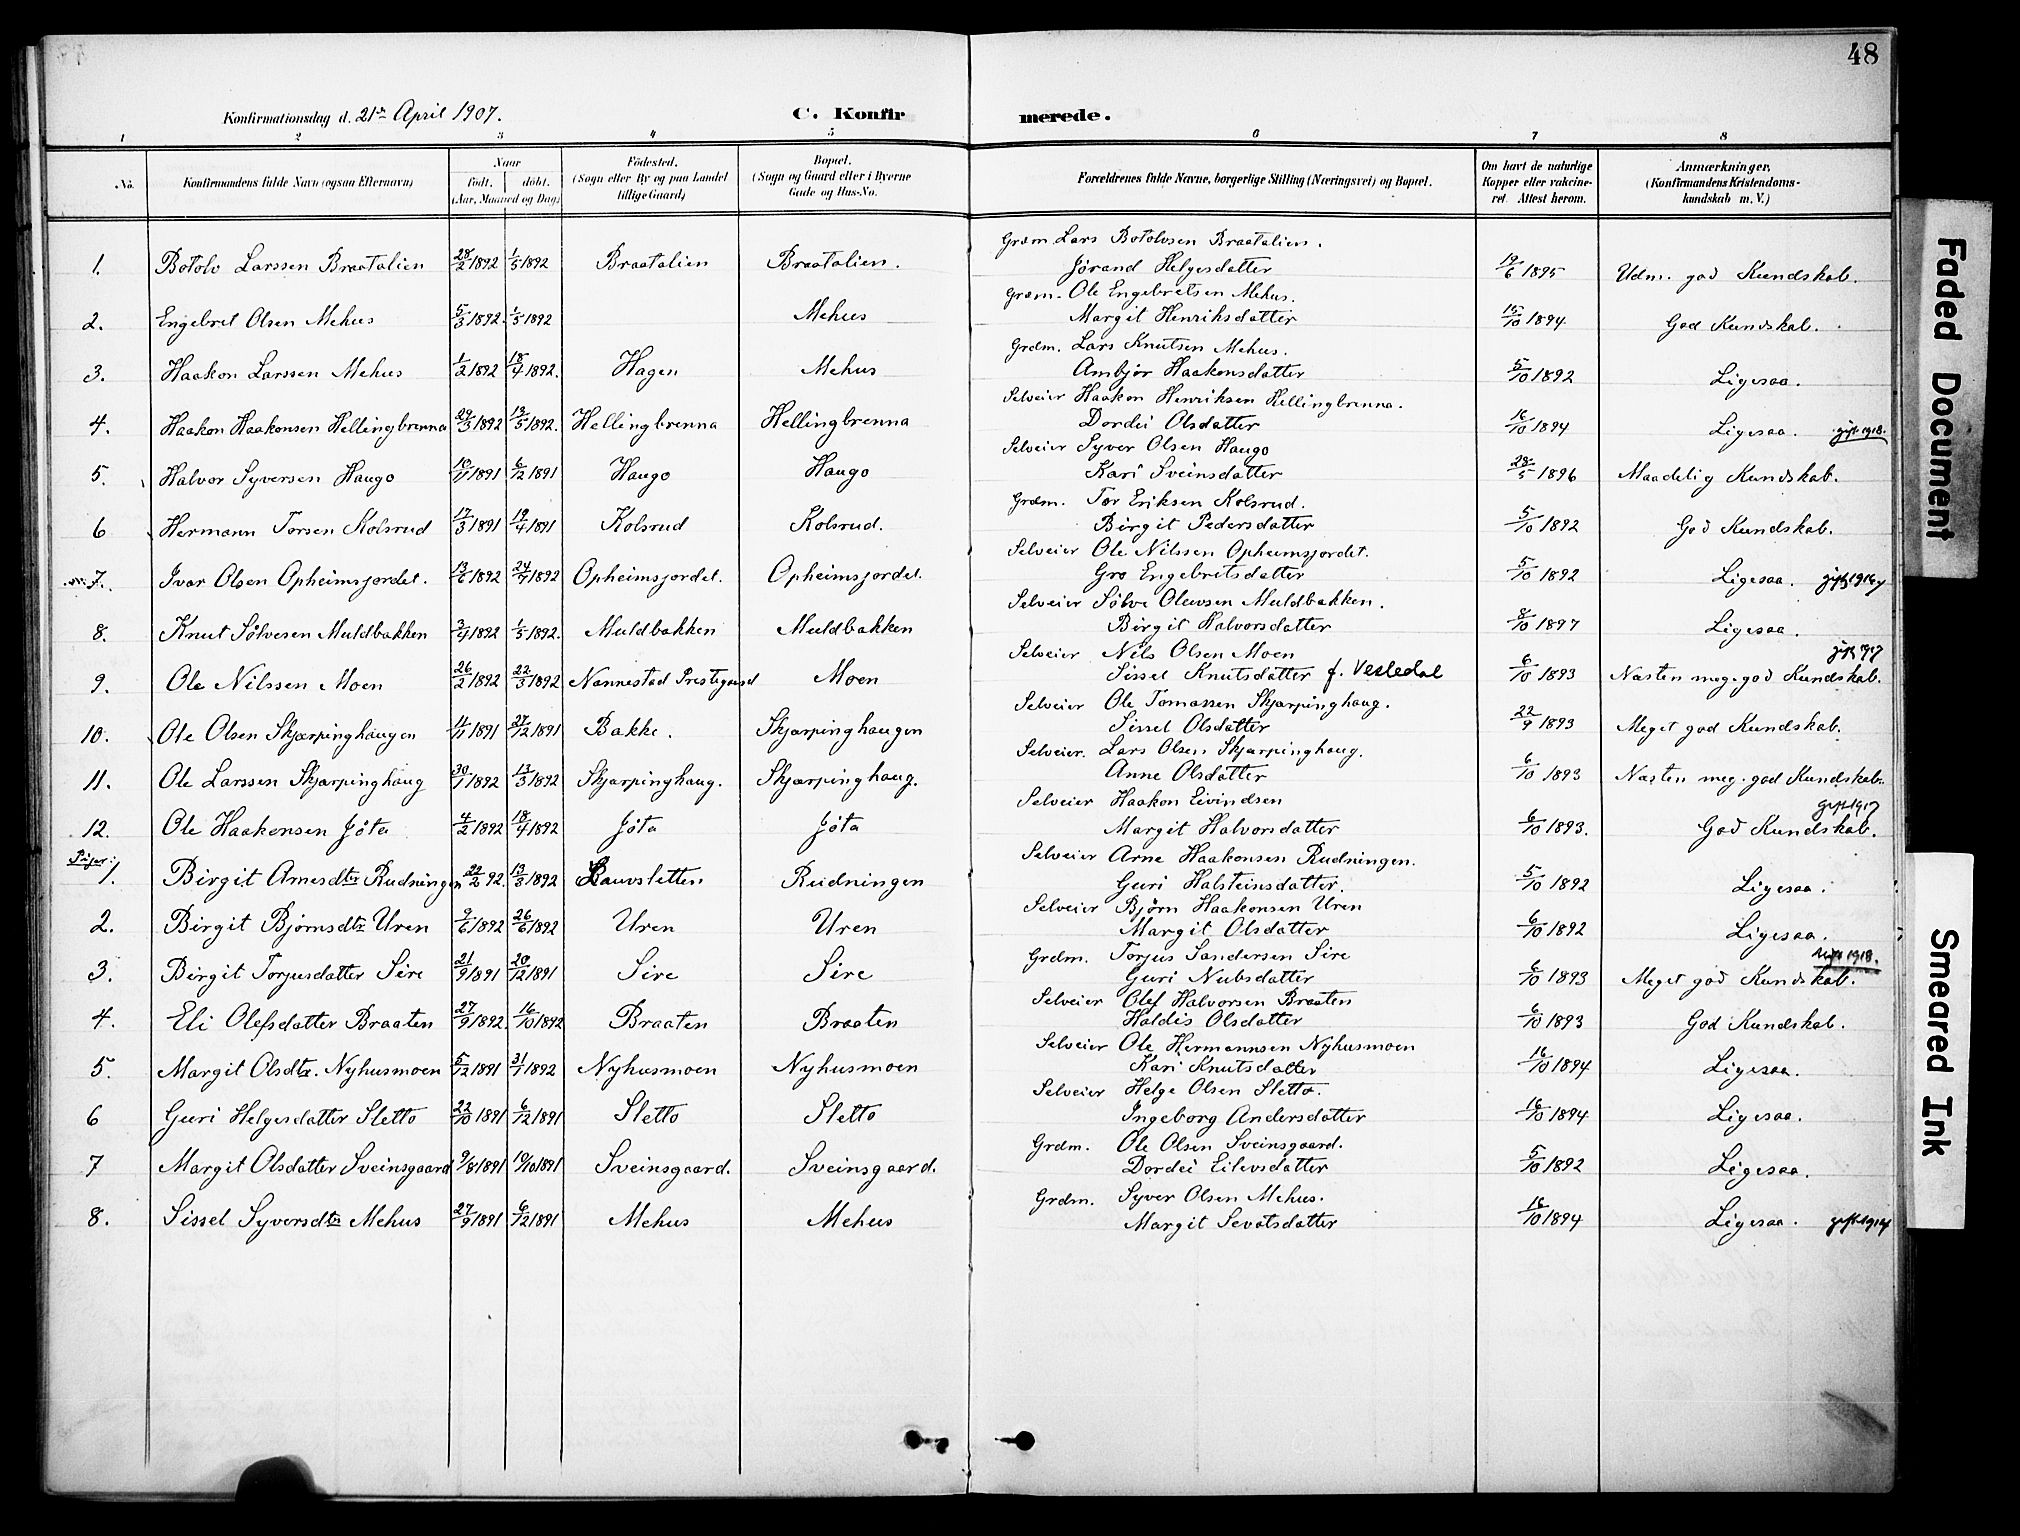 48
Konfirmationsdag d. 21de April 1907. C. Konfirmerede.
1 2 3 4 5 6 7 8
No. Konfirmandens fulde Navn (ogsaa Efternavn) Naar født, døbt. (Aar, Maaned og Dag) Fødested. (Sogn eller By og paa Landet tillige Gaard) Bopæl. (Sogn og Gaard eller i Byerne Gade og Hus-No. Forældrenes fulde Navne, borgerlige Stilling (Næringsvei) og Bopæl. Om havt de naturlige Kopper eller vakcineret. Attest herom. Anmærkninger. (Konfirmandens Kristendomskundskab m. V.)
1. Botolv Larssen Braatalien 28/2 1892 1/5 1892 Braatalien Braatalien. Grdm Lars Botolvsen Braatalien. Jørand Helgesdatter 19/6 1895 Udm. god Kundskab.
2. Engebret Olsen Mehus 5/3 1892. 1/5 1892 Mehus Grdm. Ole Engebretsen Mehus. Margit Henriksdatter 15/10 1894 God Kundskab.
3. Haakon Larssen Mehus 1/2 1892 18/4 1892. Hagen Mehus Grdm. Lars Knutsen Mehus. Ambjør Haakonsdatter 5/10 1892 Ligesaa.
4. Haakon Haakonsen Hellingbrenna 29/3 1892 19/5 1892. Hellingbrenna Hellingbrenna Selveier Haakon Henriksen Hellingbrenna. Dordei Olsdatter 16/10 1894 Ligesaa. gift 1918.
5. Halvor Syversen Haugo 10/11 1891 6/12 1891 Haugo Haugo Selveier Syver Olsen Haugo Kari Sveinsdatter 28/5 1896 Maadelig Kundskab.
6 Hermann Torsen Kolsrud 17/3 1891 19/4 1891 Kolsrud Kolsrud. Grdm. Tor Eriksen Kolsrud. Birgit Pedersdatter 5/10 1892 God Kundskab.
7. Ivar Olsen Opheimsjordet. 13/6 1892 24/7 1892 Opheimsjordet. Opheimsjordet. Selveier Ole Nilssen Opheimsjordet. Gro Engebretsdatter 5/10 1892 Ligesaa. gift 1916
8. Knut Sølvesen Muldbakken 3/4 1892 1/5 1892. Muldbakken Muldbakken Selveier Sølve Olavsen Muldbakken. Birgit Halvorsdatter 8/10 1897 Ligesaa.
9. Ole Nilssen Moen 26/2 1892 22/3 1892 Nannestad Prestegaard Moen Selveier Nils Olsen Moen Sissel Knutsdatter f. Vesledal 6/10 1893 Næsten meg. god Kundskab. gift 1917
10. Ole Olsen Skjærpinghaugen 11/11 1891 27/12 1891 Bakke. Skjærpinghaugen Selveier Ole Tomassen Skjærpinghaug. Sissel Olsdatter 22/9 1893 Meget god Kundskab.
11. Ole Larssen Skjærpinghaug 30/1 1892 13/3 1892 Skjærpinghaug. Skjærpinghaug. Selveier. Lars Olsen Skjærpinghaug. Anne Olsdatter 6/10 1893 Næsten meg. god Kundskab.
12. Ole Haakensen Jøta 4/2 1892 18/4 1892 Jøta Jøta Selveier Haakon Eivindsen Margit Halvorsdatter 6/10 1893. God Kundskab. gift 1917
Piger:
1. Birgit Arnesdtr Rudningen 22/2 92. 13/3 1892 Rudningen Selveier Arne Haakonsen Rudningen. Guri Halsteinsdatter. 5/10 1892 Ligesaa.
2. Birgit Bjørnsdtr Uren 9/6 1892 26/6 1892 Uren Uren Selveier Bjørn Haakonsen Uren Margit Olsdatter 6/10 1892 Ligesaa.
3. Birgit Torjusdatter Sire 21/9 1891 20/12 1891 Sire Sire Grdm. Torjus Sandersen Sire Guri Nubsdatter 6/10 1893 Meget god Kundskab. gift 1918.
4. Eli Olefsdatter Braaten 27/9 1892. 16/10 1892 Braaten Braaten Selveier Olef Halvorsen Braaten Haldis Olsdatter 6/10 1893 God Kundskab.
5. Margit Olsdtr. Nyhusmoen 5/12 1891 31/1 1892 Nyhusmoen Nyhusmoen Selveier Ole Hermannsen Nyhusmoen Kari Knutsdatter 16/10 1894 Ligesaa.
6 Guri Helgesdatter Sletto 22/10 1891 6/12 1891 Sletto Sletto Selveier Helge Olsen Sletto. Ingeborg Andersdatter 16/10 1894 Ligesaa.
7 Margit Olsdatter Sveinsgaard 9/8 1891 10/10 1891 Sveinsgaard. Sveinsgaard. Grdm. Ole Olsen Sveinsgaard. Dordei Eilevsdatter 5/10 1892 Ligesaa.
8. Sissel Syversdtr Mehus 27/9 1891 6/12 1891 Mehus Mehus Grdm. Syver Olsen Mehus. Margit Sevatsdatter 16/10 1894 Ligesaa. gift 1914
Faded Document
Smeared Ink